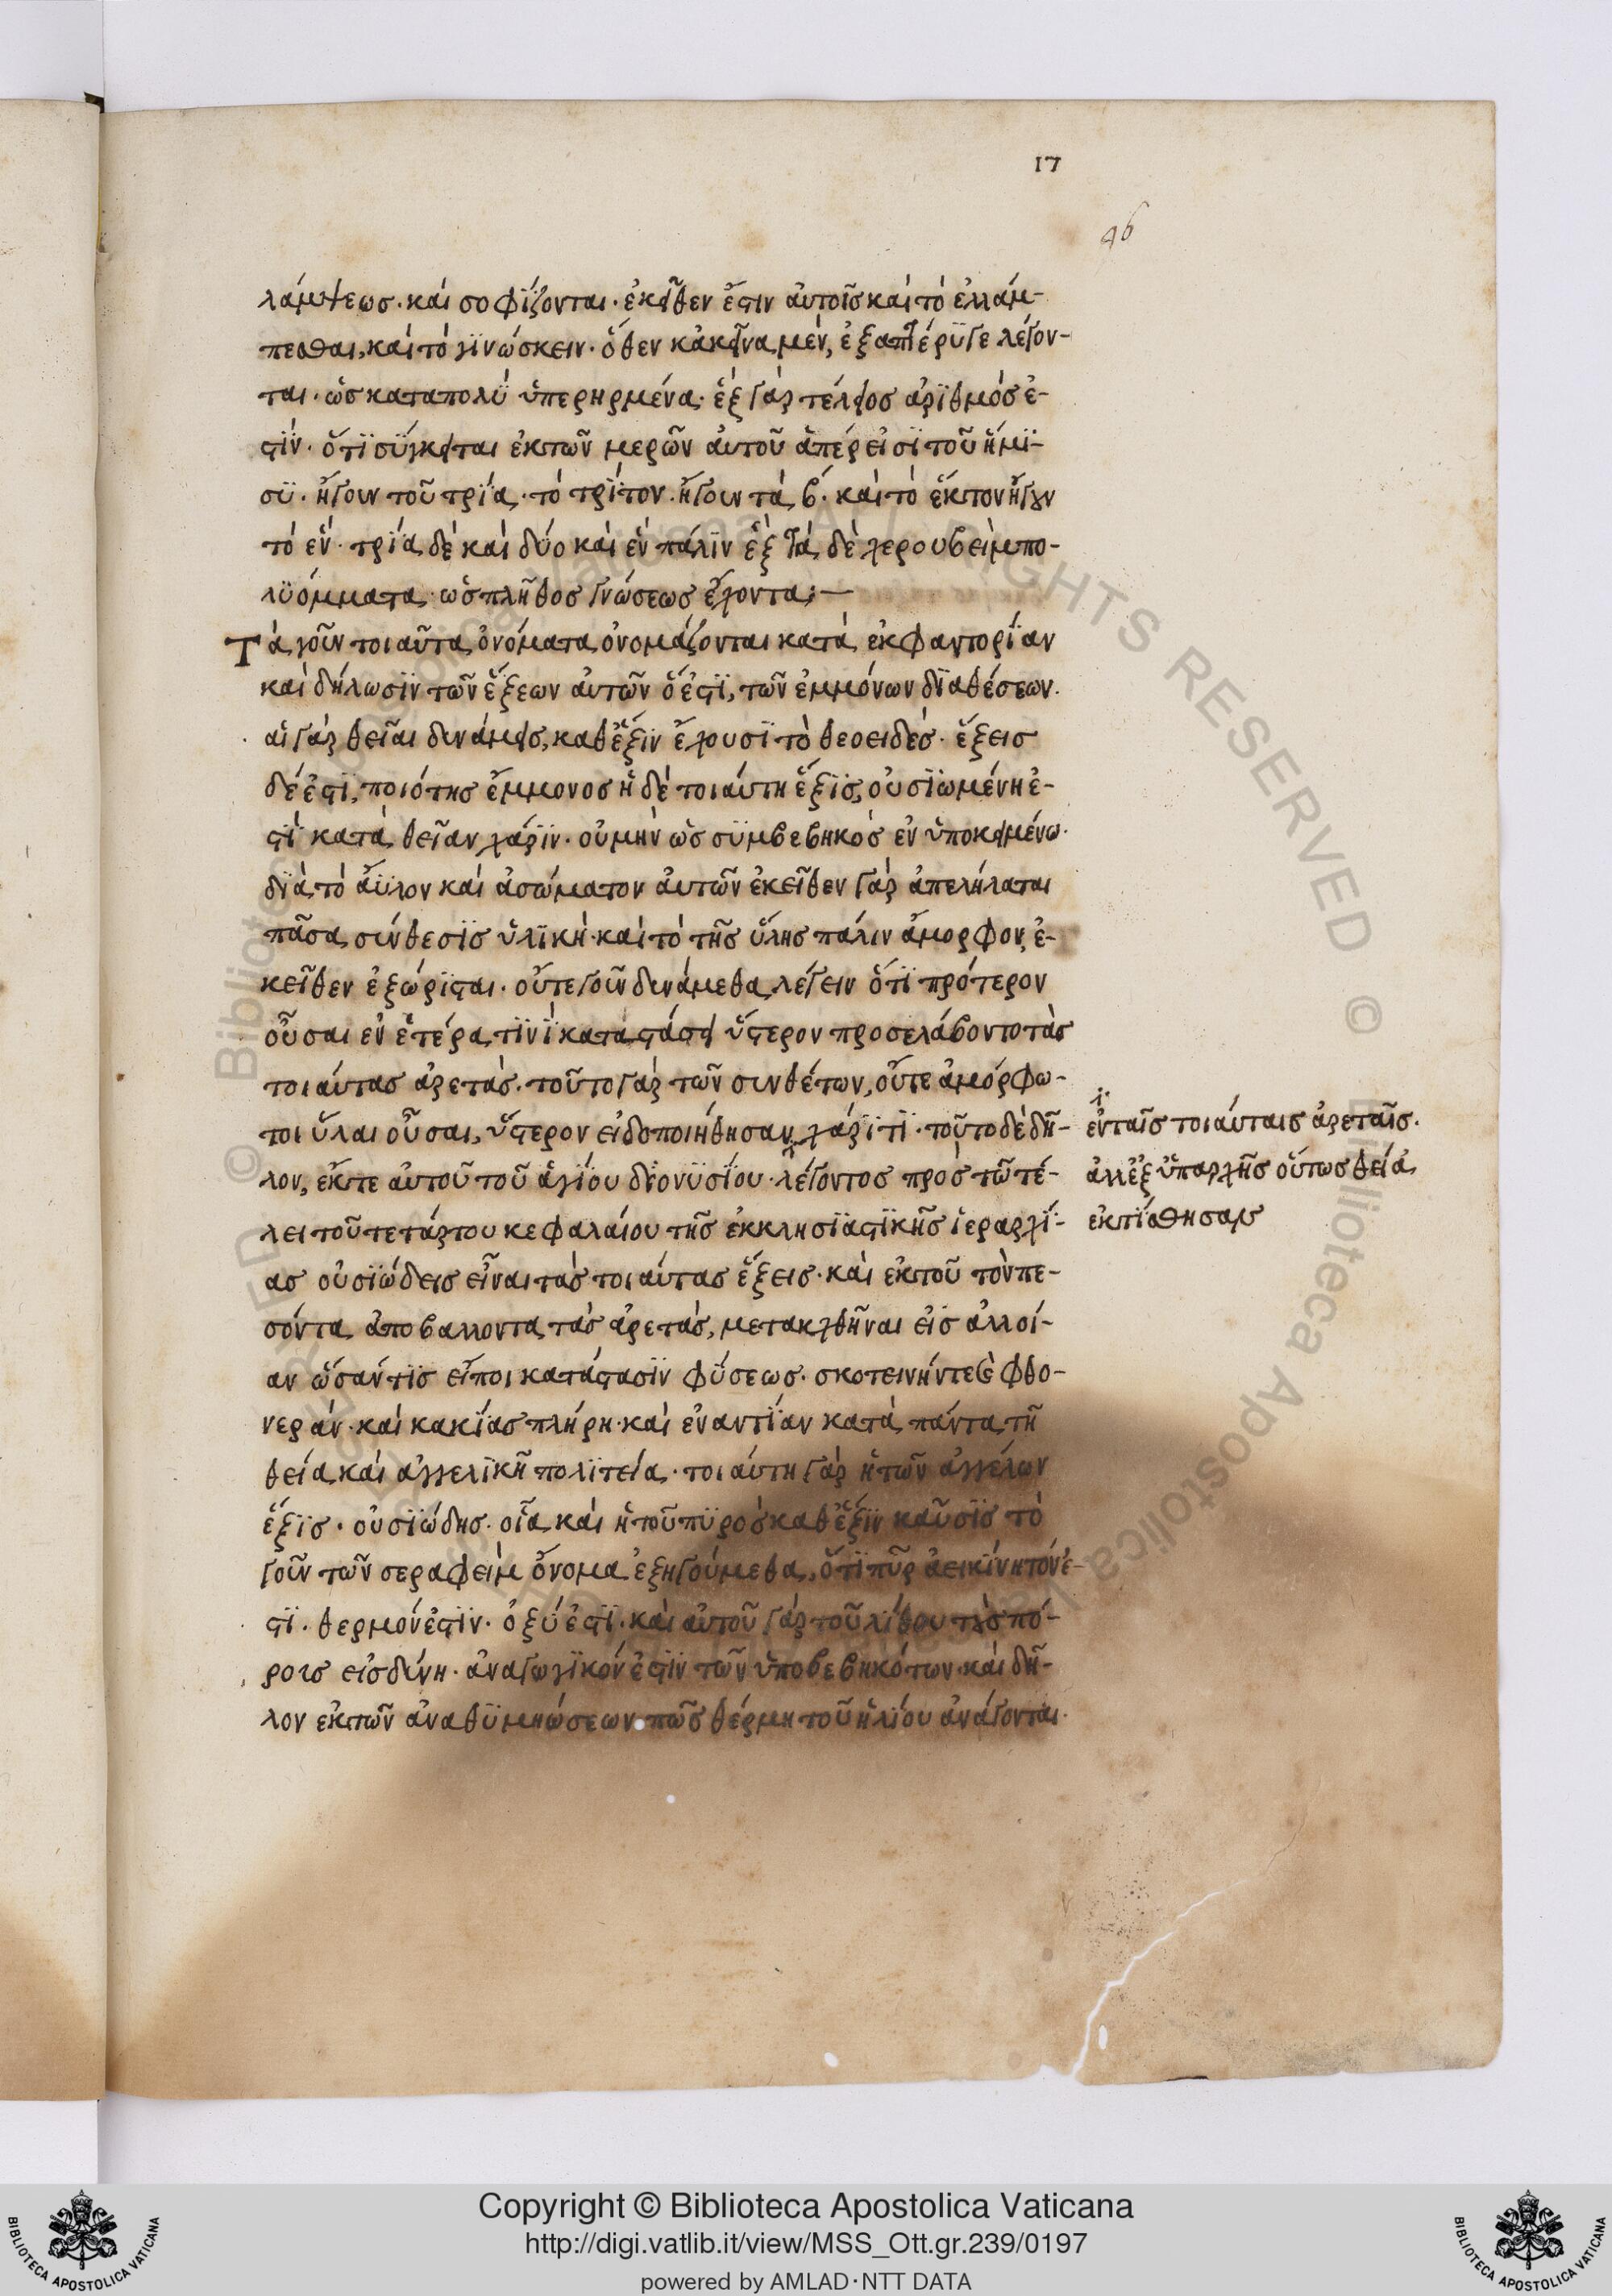 17
96
λάμψεως· καὶ σοφίζονται· ἐκεῖθεν ἔστιν αὐτοῖς καὶ τὸ ἐλλάμ-
πεσθαι, καὶ τὸ γϊνώσκειν· ὅθεν κἀκεῖνα μὲν, ἑξαπτέρϋγε λέγον-
ται· ὡς καταπολὺ ὑπερηρμένα· ἓξ γὰρ τέλειος ἀρϊθμός ἐ-
στϊν· ὅτϊ σύγκειται ἐκ τῶν μερῶν αὐτοῦ ἅπέρ εἰσϊ τοῦ ἡμί-
σϋ· ἤγουν τοῦ τρία· τὸ τρίτον· ἤγουν τὰ β· καὶ τὸ ἕκτον ἤγουν
τὸ ἕν· τρία δὲ καὶ δύο καὶ ἓν πάλϊν ἓξ τὰ δὲ χερουβεὶμ πο-
λϋόμματα· ὡς πλῆθος γνώσεως ἔχοντα:—
Τὰ γοῦν τοιαῦτα ὀνόματα ὀνομάζονται κατὰ ἐκφαντορίαν
καὶ δήλωσϊν τῶν ἕξεων αὐτῶν ὅ ἐστϊ, τῶν ἐμμόνων δϊαθέσεων·
αἱ γὰρ θεῖαι δυνάμεις, καθ ἕξϊν ἔχουσϊ τὸ θεοειδές· ἕξεις
δέ ἐστϊ, ποιότης ἔμμονος ἡ δὲ τοιαύτη ἕξϊς, οὐσϊωμένη ἐ-
στϊ κατὰ θεῖαν χάρϊν· οὐ μὴν ὡς σϋμβεβηκὸς ἐν ὑποκειμένω·
δϊὰ τὸ ἄϋλον καὶ ἀσώματον αὐτῶν ἐκεῖθεν γὰρ ἀπελήλαται
πᾶσα σύνθεσϊς ὑλϊκή· καὶ τὸ τῆς ὕλης πάλιν ἄμορφον, ἐ-
κεῖθεν ἐξώρϊσται· οὔτε γοῦν δυνάμεθα λέγειν ὅτϊ πρότερον
οὖσαι ἐν ἑτέρα τϊνὶ καταστάσει ὕστερον προσελάβοντο τὰς
τοιαύτας ἀρετάς· τοῦτο γὰρ τῶν συνθέτων, οὔτε ἀμόρφω-
τοι ὗλαι οὖσαι, ὕστερον εἰδοποιήθησαν χάρϊτϊ· τοῦτο δὲ δῆ-
λον, ἔκ τε αὐτοῦ τοῦ ἁγίου δϊονϋσίου λέγοντος πρὸς τῶ τέ-
λει τοῦ τετάρτου κεφαλαίου τῆς ἐκκλησϊαστϊκῆς ἱεραρχί-
ας οὐσϊώδεις εἶναι τὰς τοιαύτας ἕξεις· καὶ ἐκ τοῦ τὸν πε-
σόντα ἀποβαλλοντα τὰς ἀρετάς, μετακληθῆναι εἰς ἀλλοί-
αν ὡσάν τϊς εἴποι κατάστασϊν φύσεως· σκοτεινήν τε καὶ φθο-
νεράν· καὶ κακίας πλήρη· καὶ ἐναντίαν κατὰ πάντα τῆ
θεία καὶ ἀγγελϊκῆ πολϊτεία· τοιαύτη γὰρ ἡ τῶν ἀγγέλων
ἕξϊς· οὐσϊώδης· οἵα καὶ ἡ τοῦ πϋρὸς καθ ἕξϊν καῦσϊς τὸ
γοῦν τῶν σεραφεὶμ ὄνομα ἐξηγούμεθα, ὅτϊ πῦρ ἀεικίνητόν ἐ-
στϊ· θερμόν ἐστϊν· ὀξύ ἐστϊ· καὶ αὐτοῦ γὰρ τοῦ λίθου τοὺς πό-
ροις εἰσδύνη· ἀναγωγϊκόν ἐστϊν τῶν ὑποβεβηκότων· καὶ δῆ-
λον ἐκ τῶν ἀναθϋμηώσεων πῶς θέρμη τοῦ ἡλίου ἀνάγονται·
ἐν ταῖς τοιαύταις ἀρεταῖς·
ἀλλ ἐξ ὑπαρχῆς οὕτως θεία
ἐκτίσθησαν
Copyright © Biblioteca Apostolica Vaticana
http://digi.vatlib.it/view/MSS_Ott.gr.239/0197
powered by AMLAD·NTT DATA
BIBLIOTECA APOSTOLICA VATICANA
BIBLIOTECA APOSTOLICA VATICANA